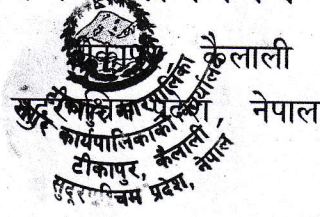 टीकापुर, कैलाली
सुदूरपश्चिम प्रदेश, नेपाल
कार्यपालिकाको कार्यालय
टीकापुर, कैलाली
सुदूरपश्चिम प्रदेश, नेपाल